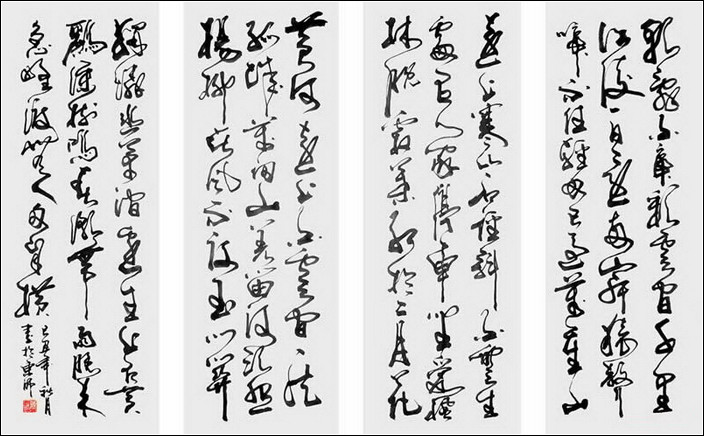 朝辭白帝彩雲間千里
江陵一日還兩岸猿聲
啼不住輕舟已過萬重山
遠上寒山石徑斜白雲生
處有人家停車坐愛楓
林晚霜葉紅於二月花
黃河遠上白雲間一片
孤城萬仞山羌笛何須怨
楊柳春風不度玉門關
獨憐幽草澗邊生上有黃
鸝深樹鳴春潮帶雨晚來
急野渡無人舟自橫
己丑年秋月
書於東師